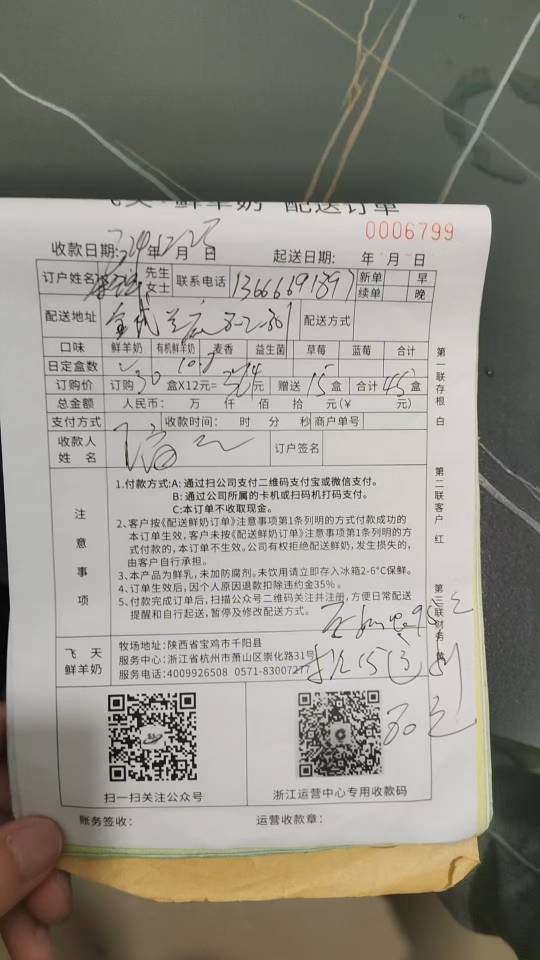 飞天·鲜羊奶 配送订单
0006799
收款日期: 年12月25日 起送日期: 年 月 日
订户姓名 先生 女士 联系电话 13666691897 新单 续单 早 晚
配送地址 3-2-301 配送方式
口味 鲜羊奶 有机鲜羊奶 麦香 益生菌 草莓 蓝莓 合计
日定盒数
订购价 订购30盒X12元= 元 赠送15盒 合计45盒
总金额 人民币: 万 仟 佰 拾 元(¥ 元)
支付方式 收款时间: 时 分 秒 商户单号
收款人姓名 订户签名
注意事项
1.付款方式:A: 通过扫公司支付二维码支付宝或微信支付。
B: 通过公司所属的卡机或扫码机打码支付。
C:本订单不收取现金。
2、客户按《配送鲜奶订单》注意事项第1条列明的方式付款成功的
本订单生效,客户未按《配送鲜奶订单》注意事项第1条列明的方
式付款的,本订单不生效。公司有权拒绝配送鲜奶,发生损失的,
由客户自行承担。
3、本产品为鲜乳,未加防腐剂。未饮用请立即存入冰箱2-6°C保鲜。
4、订单生效后,因个人原因退款扣除违约金35%。
5、付款完成订单后,扫描公众号二维码关注并注册,方便日常配送
提醒和自行起送,暂停及修改配送方式。
飞天鲜羊奶
牧场地址:陕西省宝鸡市千阳县
服务中心:浙江省杭州市萧山区崇化路31号
服务电话:4009926508 0571-8300727
扫一扫关注公众号
浙江运营中心专用收款码
账务签收: 运营收款章:
第一联存根 白
第二联客户 红
第三联财务 黄